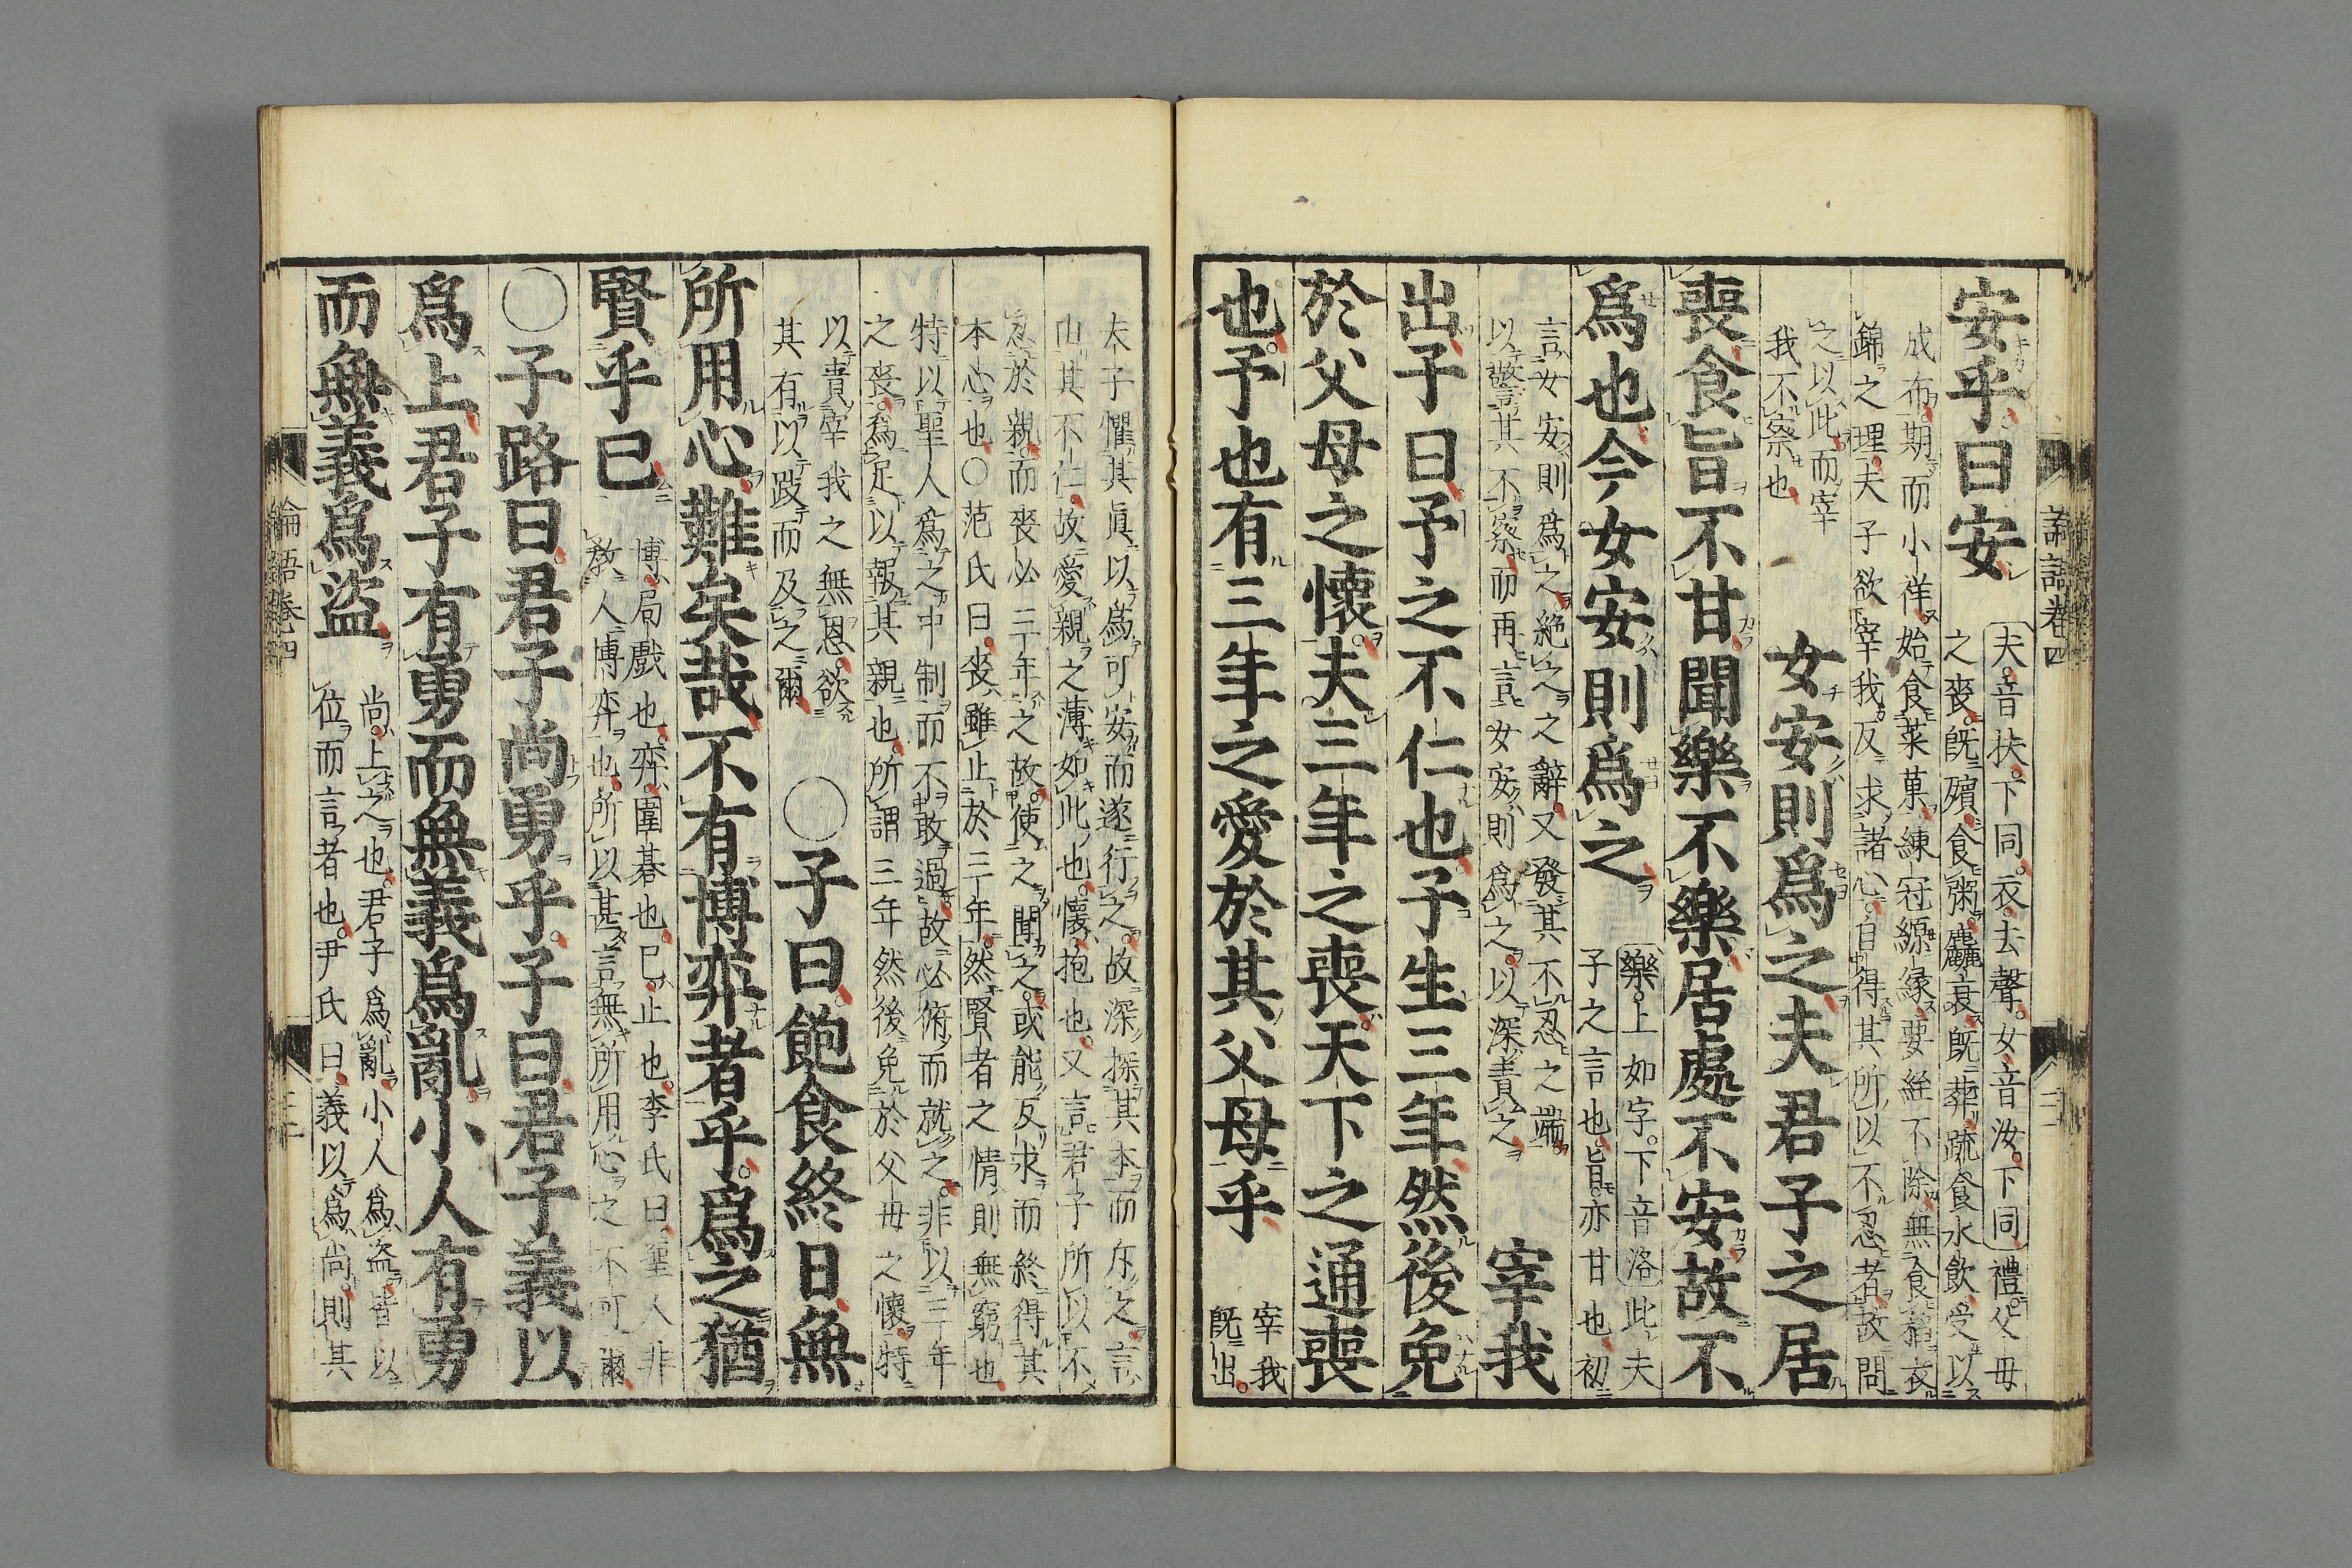 論語卷四
安乎曰安
夫音扶下同衣去聲女音汝下同禮父母
之喪旣殯食粥麤衰旣葬疏食水飮受以
成布期而小祥始食菜菓練冠縓緣要絰不除無食稻衣
錦之理夫子欲宰我反求諸心自得其所以不忍者故問
之以此而宰
我不察也
女安則爲之夫君子之居
喪食旨不甘聞樂不樂居處不安故不
爲也今女安則爲之
樂上如字下音洛此夫
子之言也旨亦甘也初
言女安則爲之絶之之辭又發其不忍之端
以警其不察而再言女安則爲之以深責之
宰我
出子曰予之不仁也子生三年然後免
於父母之懷夫三年之喪天下之通喪
也予也有三年之愛於其父母乎
宰我
旣出
夫子懼其眞以爲可安而遂行之故深探其本而斥之言
由其不仁故愛親之薄如此也懷抱也又言君子所以不
忍於親而喪必三年之故使之聞之或能反求而終得其
本心也○范氏曰喪雖止於三年然賢者之情則無窮也
特以聖人爲之中制而不敢過故必俯而就之非以三年
之喪爲足以報其親也所謂三年然後免於父母之懷特
以責宰我之無恩欲
其有以跂而及之爾
○子曰飽食終日無
所用心難矣哉不有博弈者乎爲之猶
賢乎已
博局戲也弈圍碁也已止也李氏曰聖人非
敎人博弈也所以甚言無所用心之不可爾
○子路曰君子尚勇乎子曰君子義以
爲上君子有勇而無義爲亂小人有勇
而無義爲盜
尚上之也君子爲亂小人爲盜皆以
位而言者也尹氏曰義以爲尚則其
論語卷四